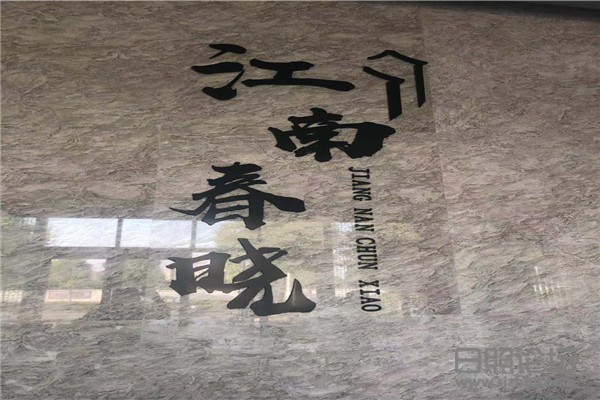 江南
春晓
JIANG NAN CHUN XIAO
日照论坛